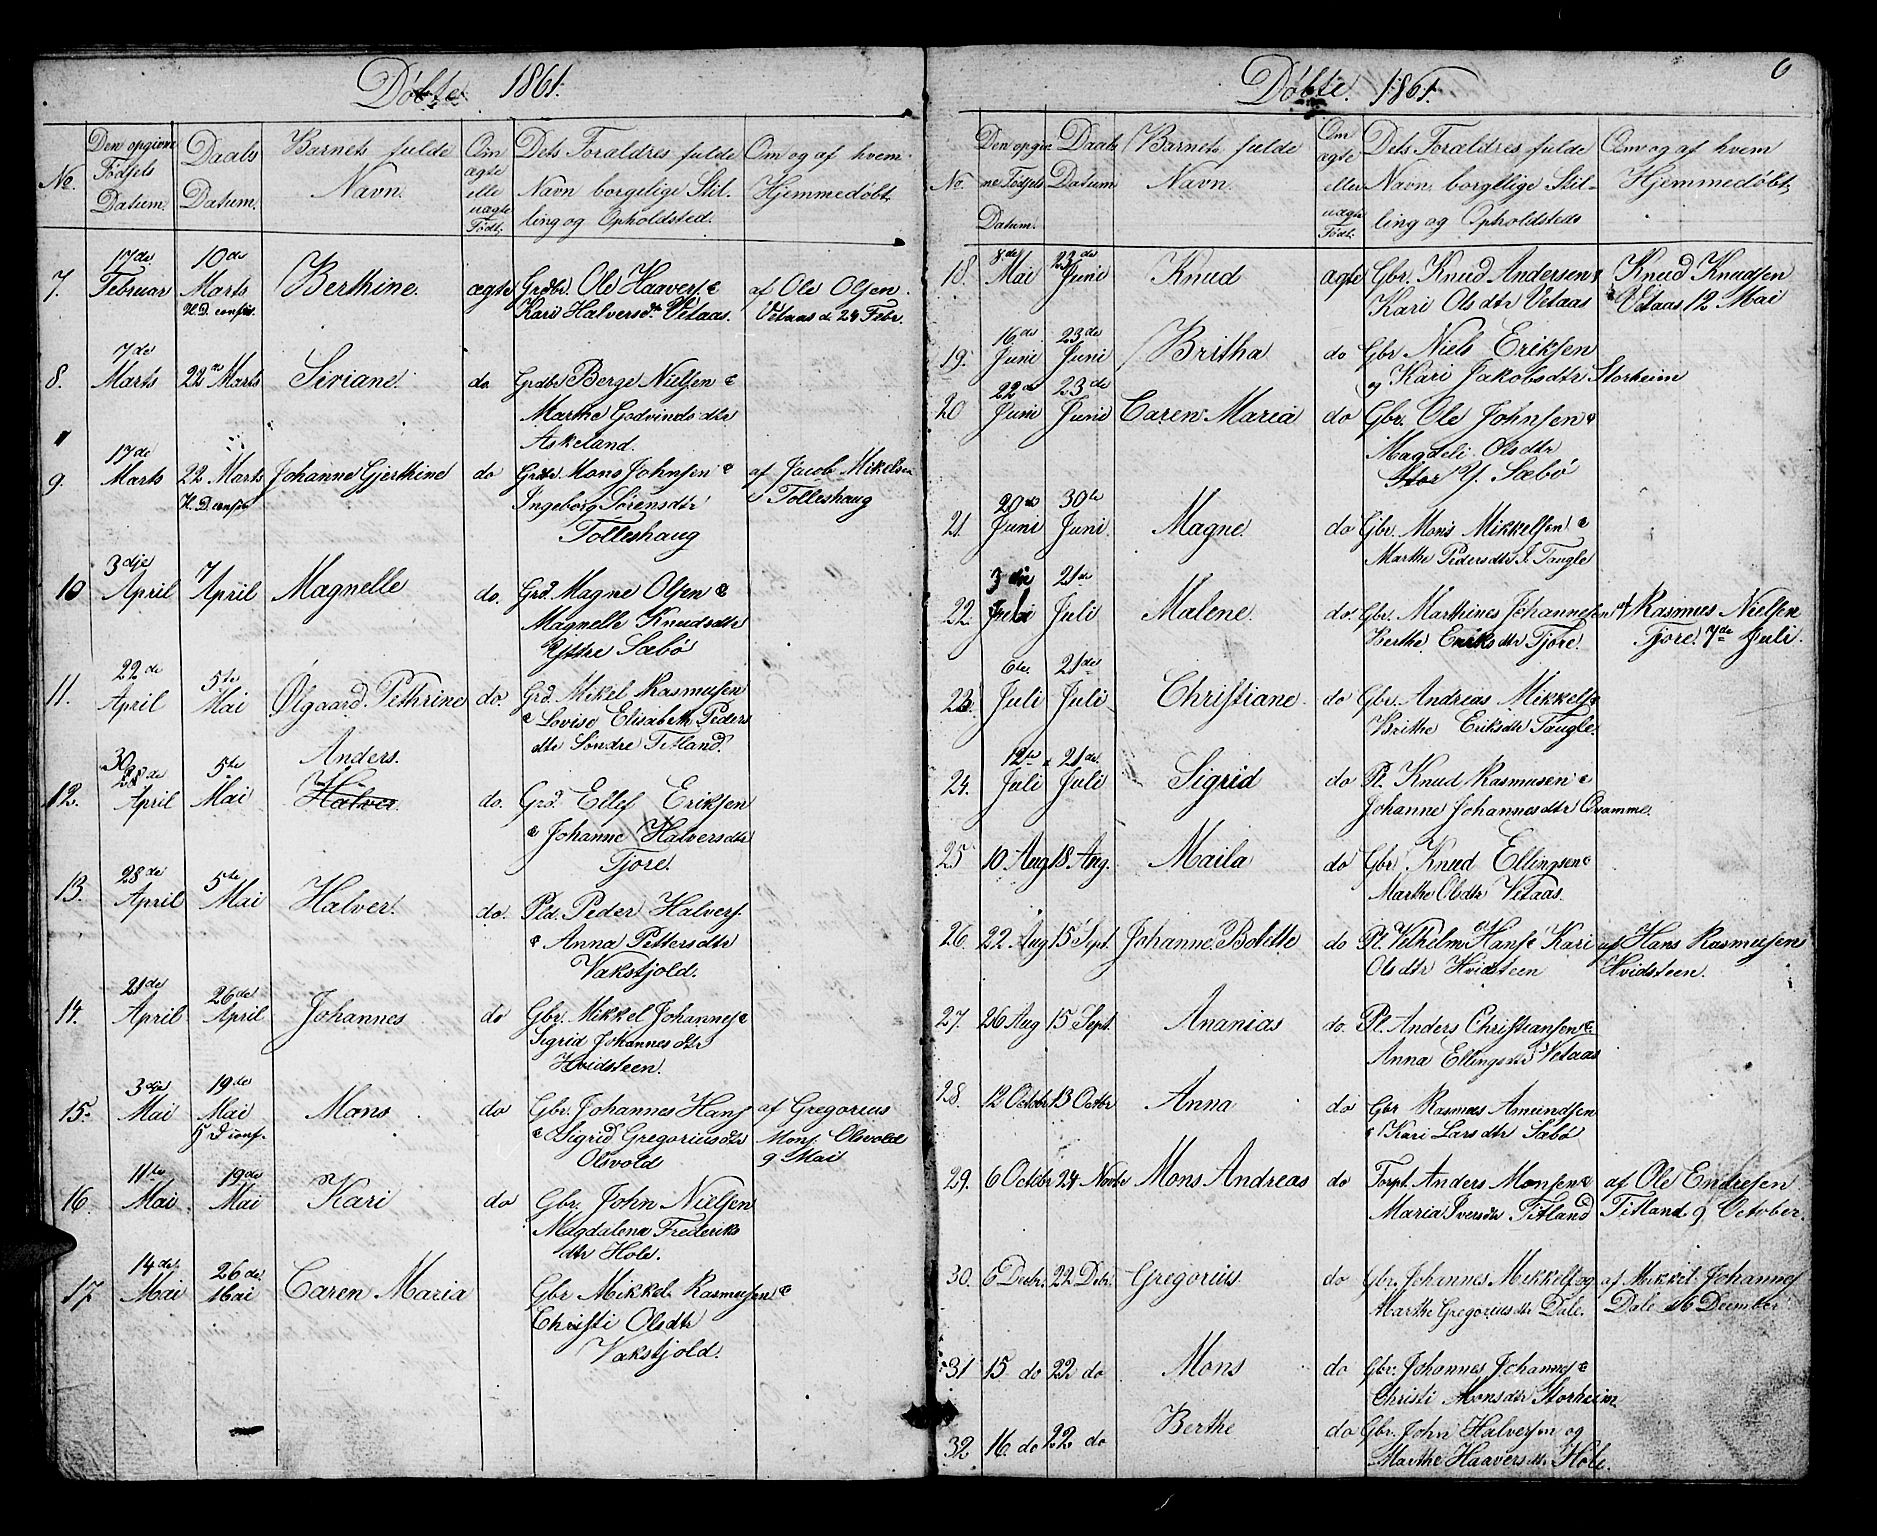 Døbte 1861.
No. Den opgivne Fødsels Datum. Daabs Datum. Barnets fulde Navn. Om ægte eller uægte Født. Dets Forældres fulde Navn borgelige Stilling og Opholdsted. Om og af hvem Hjemmedøbt.
7. 17de Februar 10de Marts H.D. confir. Berthine. ægte Grdbr. Ole Haavers. & af Ole Olsen
Kari Halversdr. Vetaas. Vetaas d. 24 Febr.
8. 7de Marts 22de Marts Siriane. do Grdbr. Berge Nielsen &
Marthe Godvinds dtr
Askeland.
9. 17de Marts 22 Marts H.D. confir. Johanne Gjerthine do Grdbr. Mons Johnsen & af Jacob Mikelsen
Ingeborg Sørensdtr Tolleshaug
Tolleshaug
10 3dje April 7 April Magnelle do. Grd. Magne Olsen &
Magnelle Knudsdtr
Yttre Sæbø
11. 22de April 5te Mai Ølgaard Pethrine do. Grd. Mikel Rasmusen
& Lovise Elisabeth Peders
dtr Søndre Titland.
12. 30 28de April 5te Mai Anders. Halver. do. Grd. Ellef Eriksen
& Johanne Halversdtr
Fjore.
13. 28de April 5te Mai Halver. do. Pld. Peder Halvers.
& Anna Pettersdtr
Vakstjold.
14. 21de April 26de April Johannes do Gbr. Mikkel Johannes. &
Sigrid Johannes dtr
Hvidsteen.
15. 3dje Mai 19de Mai H D conf. Mons do Gbr. Johannes Hans. af Gregorius
& Sigrid Gregoriusdtr Mons. Olsvold
Olsvold 9 Mai
16. 11te Mai 19de Mai Kari do Gbr. John Nielsen
Magdalena Frederiks
dtr Hole.
17 14de Mai 26de Mai Caren Maria Gbr Mikkel Rasmusen &
Christi Olsdtr
Vakstjold.
Døbte. 1861. 6
No. Den opgivne Fødsels Datum. Daabs Datum Barnets fulde Navn. Om ægte eller uægte Født. Dets Forældres fulde Navn borgelige Stilling og Opholdsteds Om og af hvem Hjemmedøbt,
18 8de Mai 23de Juni Knud ægte Gbr. Knud Andersen & Knud Knudsen
Kari Olsdtr Vetaas Vetaas 12 Mai
19. 16de Juni 23de Juni Britha do Gbr Niels Eriksen
og Kari Jakobsdtr Storheim
20 22de Juni 23de Juni Caren Maria do Gbr. Ole Johnsen &
Magdeli Olsdtr
Stor Y. Sæbø
21. 20de Juni 30te Juni. Magne. do Gbr. Mons Mikkelsen &
Marthe Pedersdtr I. Tangle
22. 3die Juli 21de Juli Malene. do. Gbr. Marthines Johannesen af Rasmus Nielsen
Berthe Eriks dtr Fjore. Fjore. 7de Juli.
23. 6te Juli 21de Juli. Christiane. do Gbr. Andreas Mikkels. &
Brithe Eriksdtr Tangle.
24. 12te Juli 21de. Juli Sigrid do Pl. Knud Rasmusen &
Johanne Johannesdtr Qvamme.
25 10 Aug 18. Aug. Maila do Gbr. Knud Ellingsen &
Marthe Olsdtr Vetaas.
26. 22 Aug 15 Sept. Johanne Bolette do Pl. Vilhelm Hans. & Kari af Hans Rasmusen
Olsdtr Hvidsteen Hvidsteen.
27. 26 Aug 15 Sept. Ananias do. Pl. Anders Christiansen &
Anna Ellingsdtr Vetaas
28. 12 Octobr 13 Octbr Anna do Gbr Rasmus Amundsen
& Kari Larsdtr Sæbø
29. 6 Octobr 24 Novbr Mons Andreas do Torpl. Anders Monsen & af Ole Endresen
Maria Iversdtr Titland Titland 9 October.
30. 6 Decbr. 22 Debr. Gregorius. do Gbr. Johannes Mikkels. og af Mikkel Johannes.
Marthe Gregorius dtr Dale. Dale 16 December
31 15 do 22 do Mons do Gbr. Johannes Johannes. &
Christi Monsdtr Storheim
32. 16. do 22 do Berthe do Gbr. John Halversen og
Marthe Haavers dtr Hole.